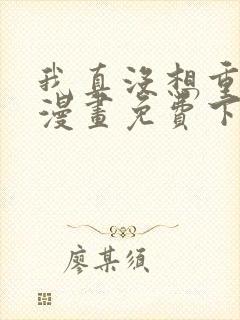 我真没想重
漫畫免費下
廖某须